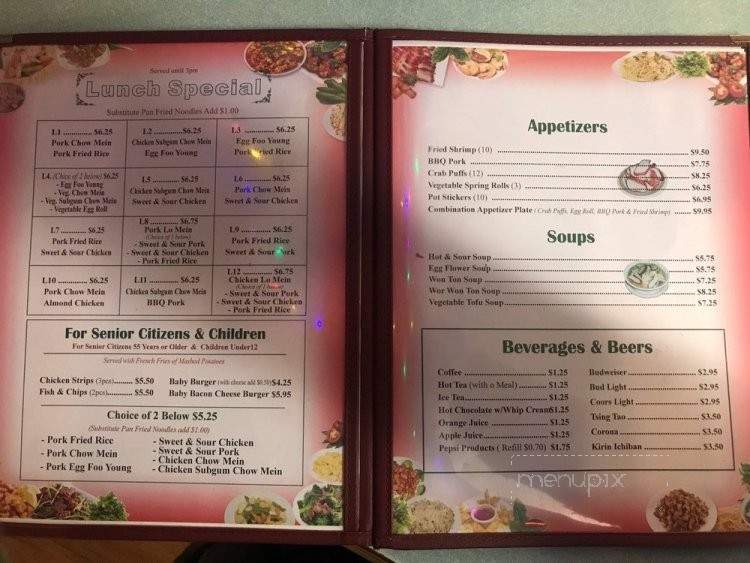 Served until 3pm
Lunch Special
Substitute Pan Fried Noodles Add $1.00
L1 .............. $6.25
Pork Chow Mein
Pork Fried Rice
L2 .............. $6.25
Chicken Subgum Chow Mein
Egg Foo Young
L3 .............. $6.25
Egg Foo Young
Pork Fried Rice
L4. (Chice of 2 below) $6.25
- Egg Foo Young
- Veg. Chow Mein
- Veg. Subgum Chow Mein
- Vegetable Egg Roll
L5 .............. $6.25
Chicken Subgum Chow Mein
Sweet & Sour Chicken
L6 .............. $6.25
Pork Chow Mein
Sweet & Sour Chicken
L7 .............. $6.25
Pork Fried Rice
Sweet & Sour Chicken
L8 .............. $6.75
Pork Lo Mein
(Choice of 1 below)
- Sweet & Sour Pork
- Sweet & Sour Chicken
- Pork Fried Rice
L9 .............. $6.25
Pork Fried Rice
Sweet & Sour Pork
L10 .............. $6.25
Pork Chow Mein
Almond Chicken
L11 .............. $6.25
Chicken Subgum Chow Mein
BBQ Pork
L12 .............. $6.75
Chicken Lo Mein
(Choice of 1 below)
- Sweet & Sour Pork
- Sweet & Sour Chicken
- Pork Fried Rice
For Senior Citizens & Children
For Senior Citizens 55 Years or Older & Children Under12
Served with French Fries of Mashed Potatoes
Chicken Strips (3pcs)......... $5.50
Fish & Chips (2pcs)........... $5.50
Baby Burger (with cheese add $0.50)$4.25
Baby Bacon Cheese Burger $5.95
Choice of 2 Below $5.25
(Substitute Pan Fried Noodles add $1.00)
- Pork Fried Rice
- Pork Chow Mein
- Pork Egg Foo Young
- Sweet & Sour Chicken
- Sweet & Sour Pork
- Chicken Chow Mein
- Chicken Subgum Chow Mein
Appetizers
Fried Shrimp (10) ........ $9.50
BBQ Pork ........ $7.75
Crab Puffs (12) ........ $8.25
Vegetable Spring Rolls (3) ........ $6.25
Pot Stickers (10) ........ $6.95
Combination Appetizer Plate ( Crab Puffs, Egg Roll, BBQ Pork & Fried Shrimp) ....... $9.95
Soups
Hot & Sour Soup ........ $5.75
Egg Flower Soup ........ $5.75
Won Ton Soup ........ $7.25
Wor Won Ton Soup ........ $8.25
Vegetable Tofu Soup ........ $7.25
Beverages & Beers
Coffee ........ $1.25
Hot Tea (with o Meal) ........ $1.25
Ice Tea ........ $1.25
Hot Chocolate w/Whip Cream$1.25
Orange Juice ........ $1.25
Apple Juice ........ $1.25
Pepsi Products ( Refill $0.70) $1.75
Budweiser ........ $2.95
Bud Light ........ $2.95
Coors Light ........ $2.95
Tsing Tao ........ $3.50
Corona ........ $3.50
Kirin Ichiban ........ $3.50
menupix